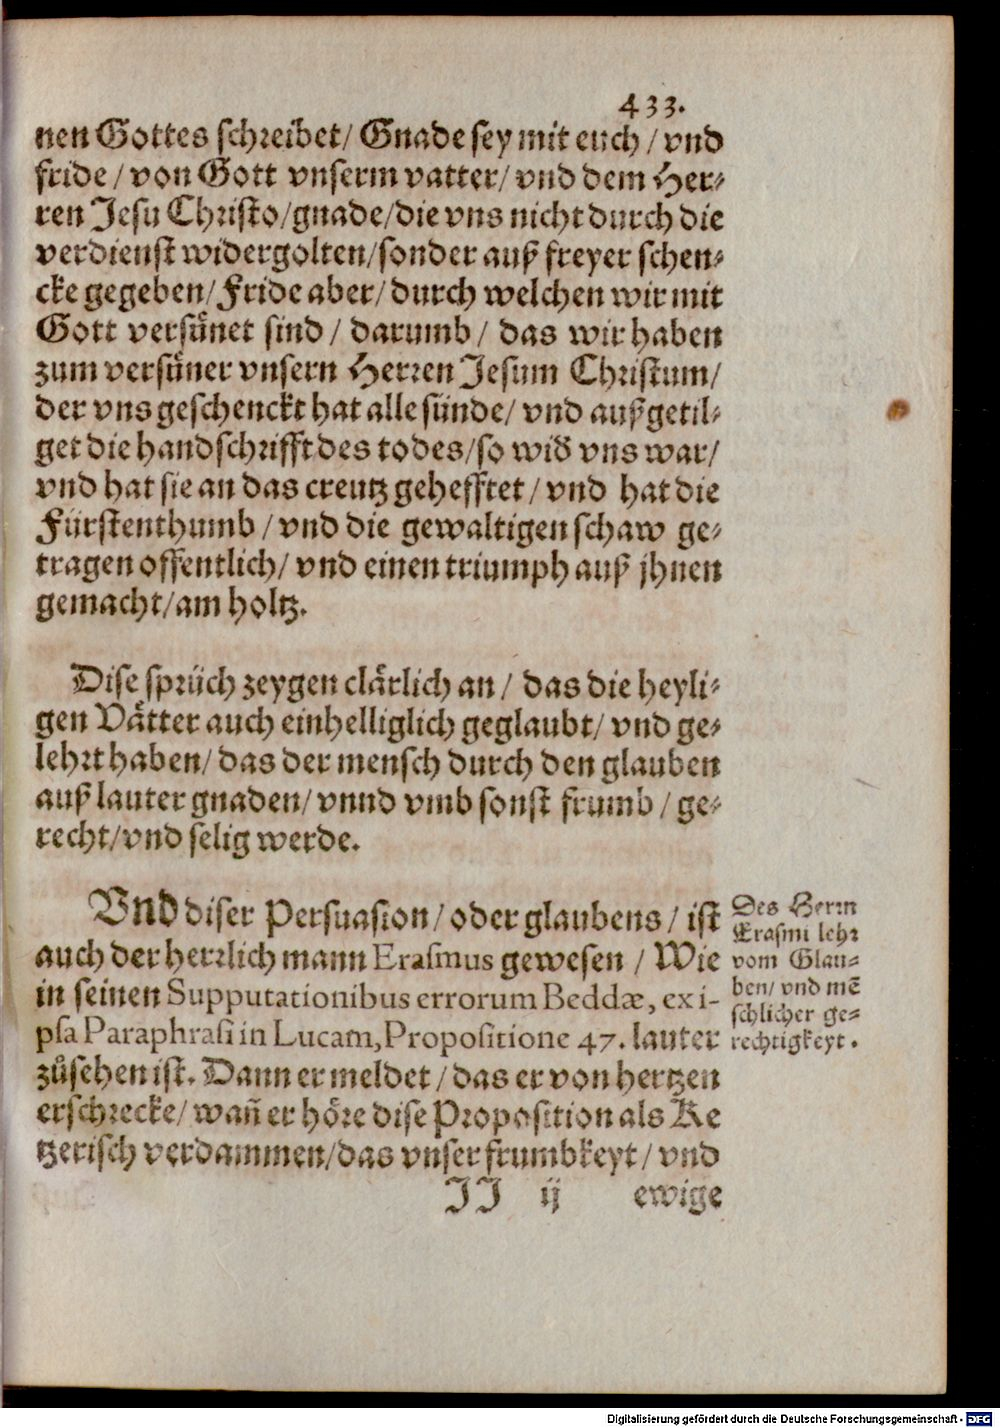 433.
nen Gottes schreibet/ Gnade sey mit euch / vnd
fride / von Gott vnserm vatter/ vnd dem Her⸗
ren Jesu Christo/gnade/die vns nicht durch die
verdienst widergolten/sonder auß freyer schen⸗
cke gegeben/ Fride aber/ durch welchen wir mit
Gott versünet sind / darumb / das wir haben
zum versüner vnsern Herren Jesum Christum/
der vns geschenckt hat alle sünde/ vnd außgetil⸗
get die handschrifft des todes/so wid̄ vns war/
vnd hat sie an das creutz gehefftet / vnd hat die
Fürstenthumb / vnd die gewaltigen schaw ge⸗
tragen offentlich/ vnd einen triumph auß jhnen
gemacht/am holtz.
Dise sprüch zeygen clärlich an / das die heyli⸗
gen Vätter auch einhelliglich geglaubt/ vnd ge⸗
lehrt haben/ das der mensch durch den glauben
auß lauter gnaden/ vnnd vmb sonst frumb / ge⸗
recht/vnd selig werde.
Vnd diser Persuasion/oder glaubens / ist
auch der herrlich mann Erasmus gewesen / Wie
in seinen Supputationibus errorum Beddæ, ex i-
psa Paraphrasi in Lucam, Propositione 47. lauter
zůsehen ist. Dann er meldet / das er von hertzen
erschrecke/ wañ er höre dise Proposition als Ke
tzerisch verdammen/das vnser frumbkeyt / vnd
JJ ij ewige
Des Herrn
Erasmi lehr
vom Glau⸗
ben/ vnd mē
schlicher ge⸗
rechtigkeyt.
Digitalisierung gefördert durch die Deutsche Forschungsgemeinschaft - DFG